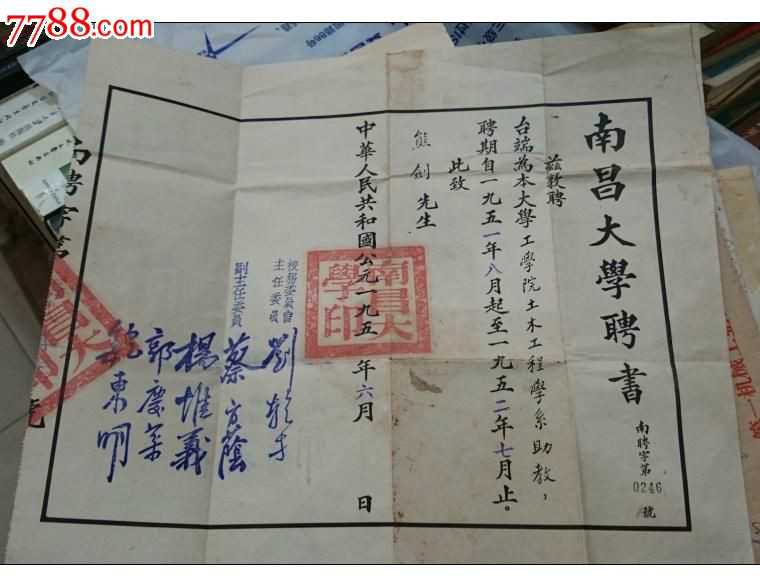 7788.com
南昌大學聘書
南聘字第
0246
號
兹敦聘
台端為本大學工學院土木工程學系助教，
聘期自一九五一年八月起至一九五二年七月止。
此致
熊劍先生
中華人民共和國公元一九五 年六月 日
南昌大學印
校務委員會
主任委員
副主任委員
蔡方蔭
楊惟義
郭慶棻
魏東明
南聘字第
號